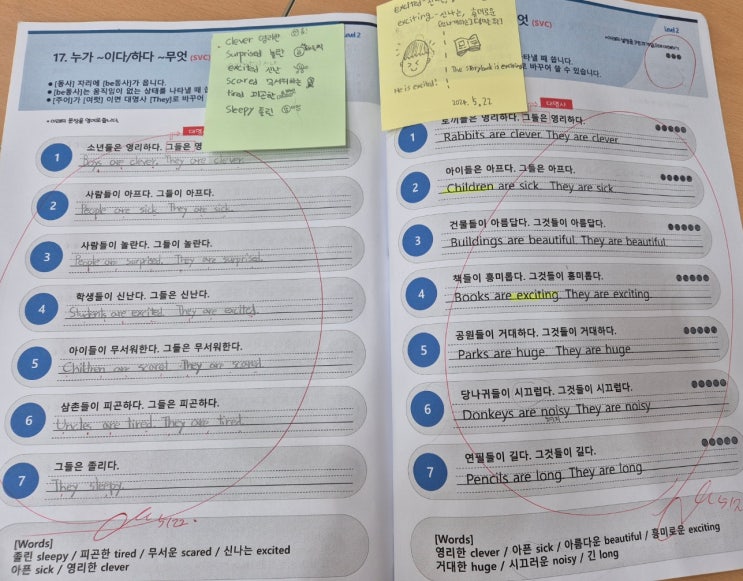 17. 누가 ~이다/하다 ~무엇 (SVC)
● [동사] 자리에 [be동사]가 옵니다.
● [be동사]는 움직임이 없는 상태를 나타낼 때 합
● [주어]가 [여럿] 이면 대명사 [They]로 바꾸어
clever 영리한
Surprised 놀란
excited 신난
scared 무서워하는
tired 피곤한
sleepy 졸린
대명
1 소년들은 영리하다. 그들은 영
Boys are clever. They are clever.
2 사람들이 아프다. 그들이 아프다.
People are sick. They are sick.
3 사람들이 놀란다. 그들이 놀란다.
People are surprised. They are surprised.
4 학생들이 신난다. 그들은 신난다.
Students are excited. They are excited.
5 아이들이 무서워한다. 그들은 무서워한다.
Children are scared. They are scared.
6 삼촌들이 피곤하다. 그들은 피곤하다.
Uncles are tired. They are tired.
7 그들은 졸리다.
They sleepy.
5/22.
[Words]
졸린 sleepy / 피곤한 tired / 무서운 scared / 신나는 excited
아픈 sick / 영리한 clever
exciting - 신나는, 흥미로운
The storybook is exciting
He is excited!
2024. 5. 22
무엇 (SVC)
Level 2
타낼 때 합니다.
바꾸어 쓸 수 있습니다.
대명사
1 토끼들은 영리하다. 그들은 영리하다.
Rabbits are clever. They are clever.
2 아이들은 아프다. 그들은 아프다.
Children are sick They are sick
3 건물들이 아름답다. 그것들이 아름답다.
Buildings are beautiful. They are beautiful
4 책들이 흥미롭다. 그것들이 흥미롭다.
Books are exciting. They are exciting
5 공원들이 거대하다. 그것들이 거대하다.
Parks are huge. They are huge
6 당나귀들이 시끄럽다. 그것들이 시끄럽다.
Donkeys are noisy They are noisy
7 연필들이 길다. 그것들이 길다.
Pencils are long. They are long
5/22
[Words]
영리한 clever / 아픈 sick / 아름다운 beautiful / 흥미로운 exciting
거대한 huge / 시끄러운 noisy / 긴 long